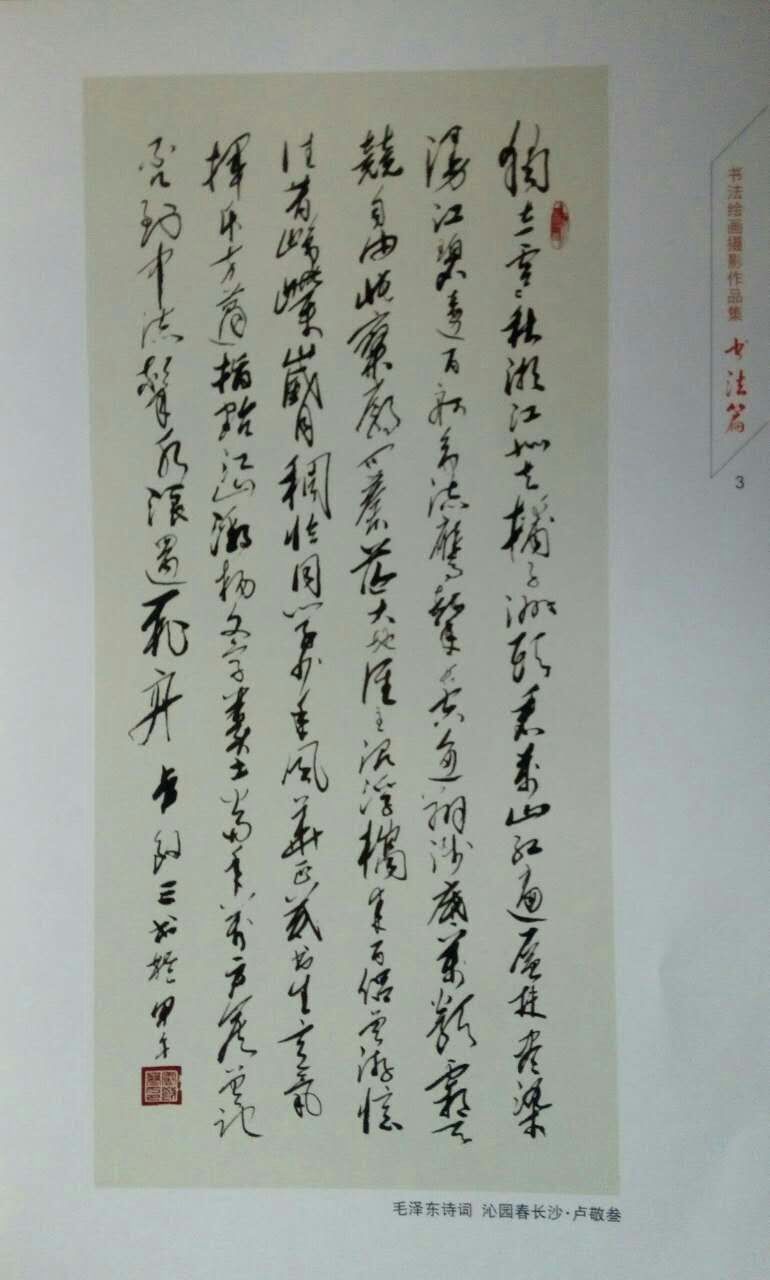 独立寒秋湘江北去橘子洲头看万山红遍层林尽染
漫江碧透百舸争流鹰击长空鱼翔浅底万类霜天
竞自由怅寥廓问苍茫大地谁主沉浮携来百侣曾游忆
往昔峥嵘岁月稠恰同学少年风华正茂书生意气
挥斥方遒指点江山激扬文字粪土当年万户侯曾记
否到中流击水浪遏飞舟
书法绘画摄影作品集 书法篇
3
毛泽东诗词 沁园春长沙·卢敬叁